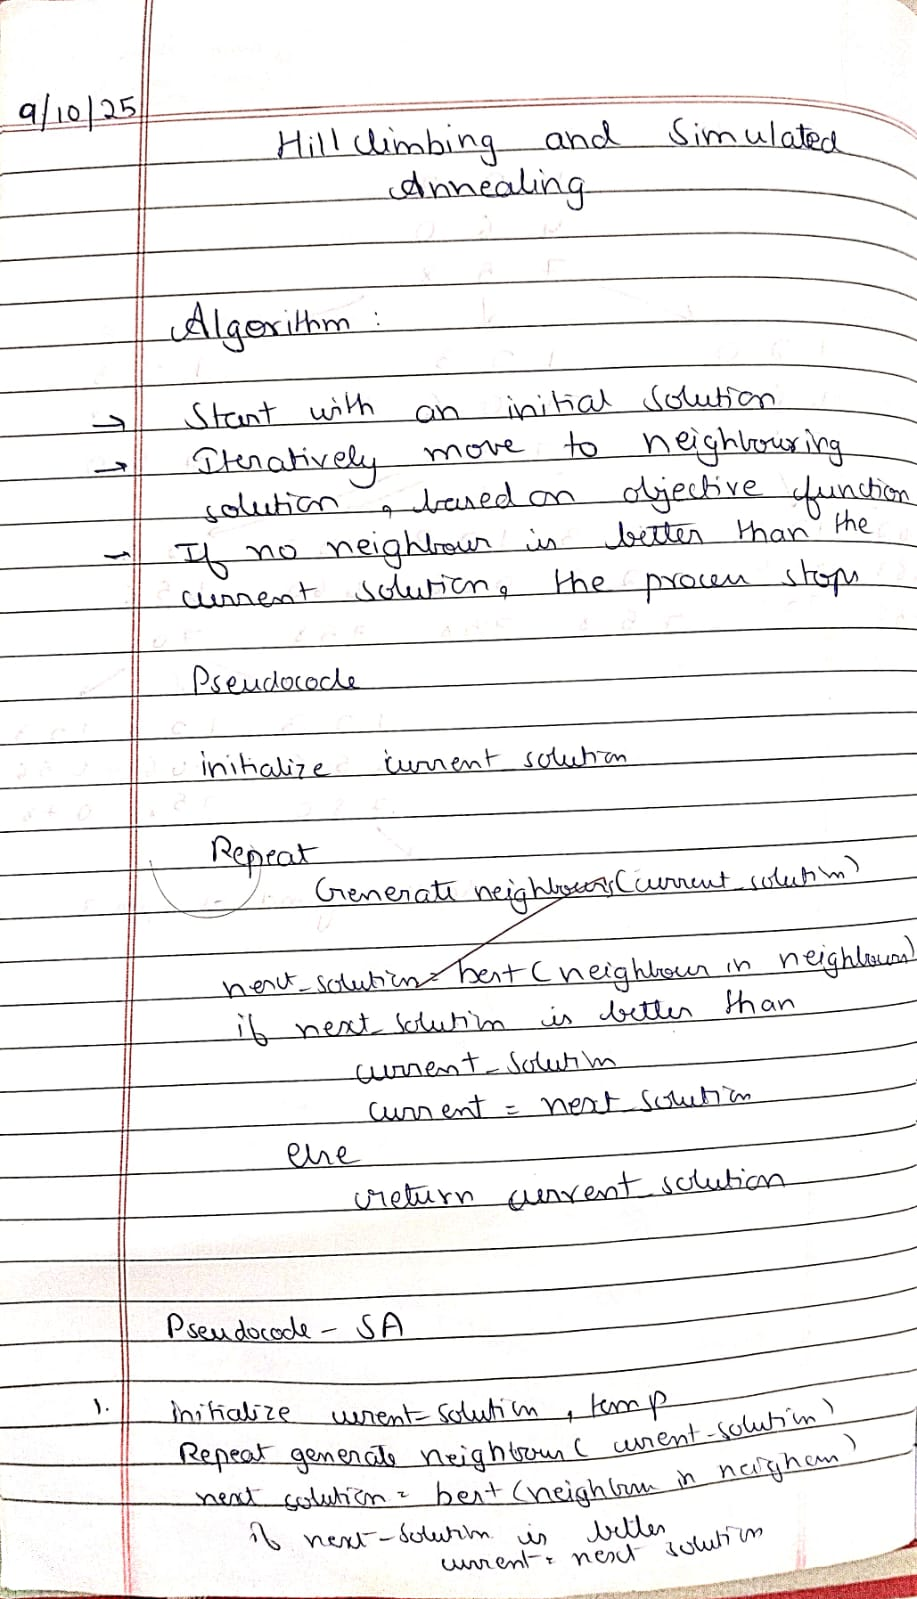 9/10/25
Hill climbing and Simulated
Annealing
Algorithm :
→ Start with an initial solution
→ Iteratively move to neighbouring
solution, based on objective function
→ If no neighbour is better than the
current solution, the process stops
Pseudocode
initialize current solution
Repeat
Generate neighbours (current_solution)
next_solution = best (neighbour in neighbours)
if next_solution is better than
current_solution
current = next solution
else
return current_solution
Pseudocode - SA
1. initialize curent solution, temp
Repeat generate neighbour (curent-solution)
next solution = best (neighbour in neigham)
if next-solution is better
current = next solution